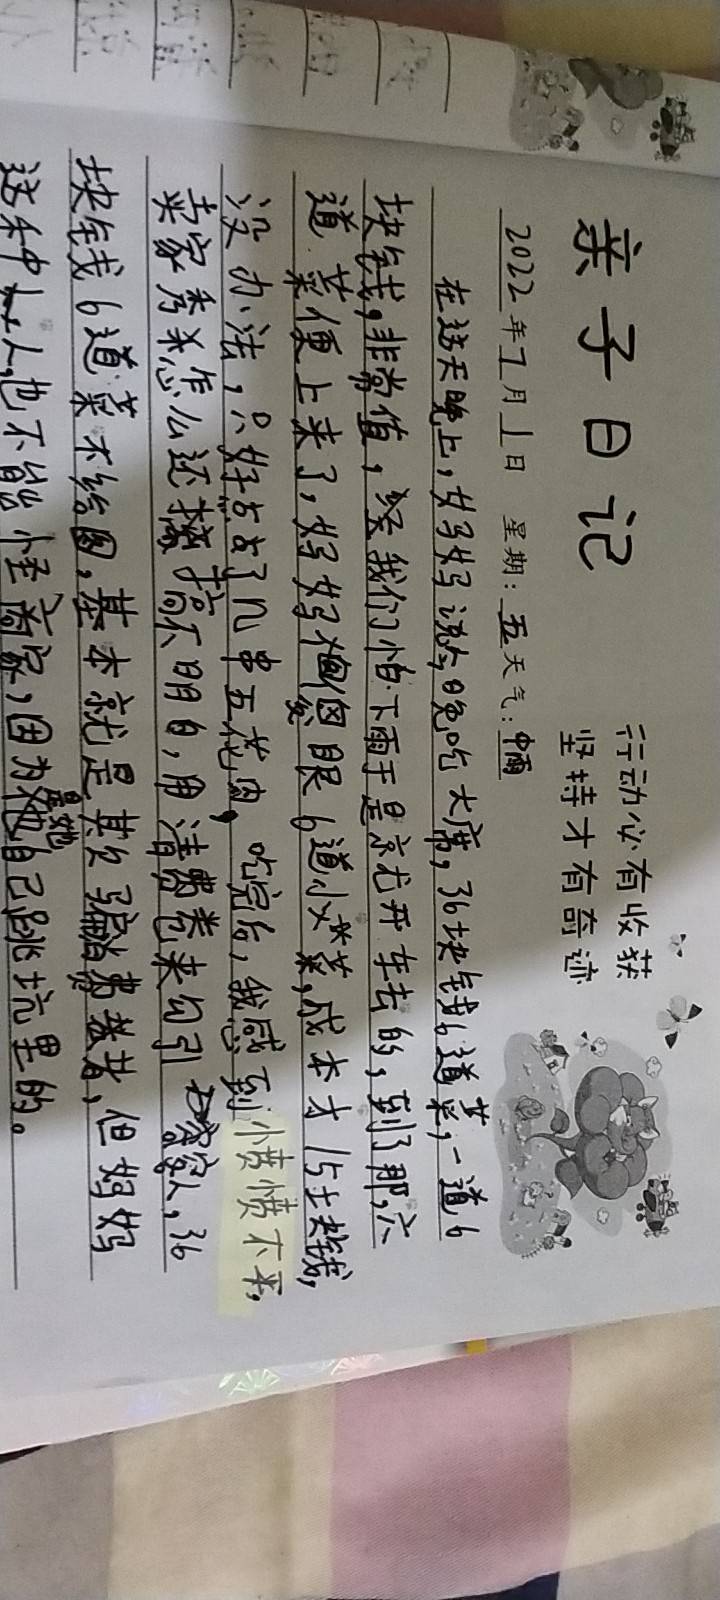 亲子日记
行动必有收获
坚持才有奇迹
2022年7月1日 星期:五天气:中雨
在这天晚上,妈妈说今晚吃大席,36块钱6道菜,一道6
块钱,非常值,我们怕下雨于是就开车去的,到了那,六
道菜便上来了,妈妈傻眼6道小菜,成本才15块钱,
没办法,只好点了几串五花肉,吃完后,我感到愤愤不平,
卖家秀怎么还搞不明白,用清费类包来勾引家人,36
块钱6道菜不给图,基本就是欺骗消费者,但妈妈
这种人,也不能怪商家,因为是她自己跳坑里的。